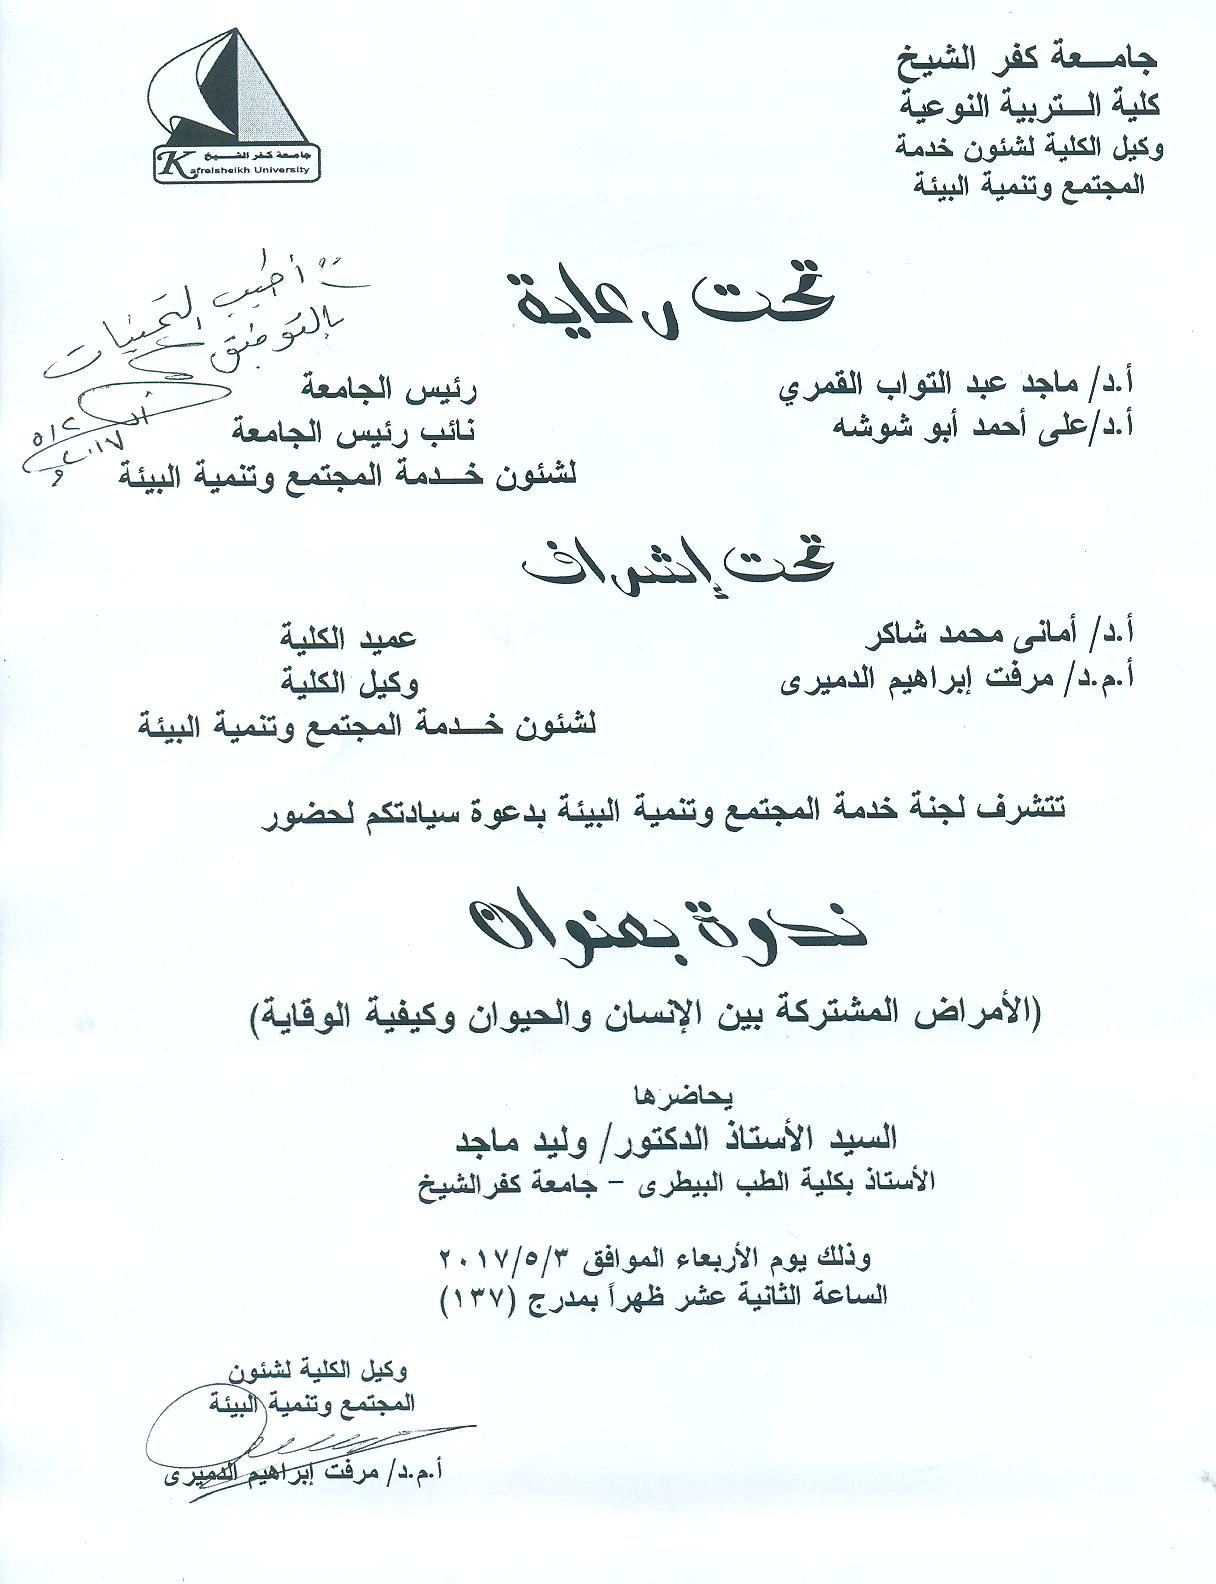 جامـــعة كفر الشيخ
كلية الـــتربية النوعية
وكيل الكلية لشئون خدمة
المجتمع وتنمية البيئة
جامعة كفر الشيخ
Kafrelsheikh University
مع أطيب التمنيات
بالتوفيق
تحت رعاية
أ.د/ ماجد عبد التواب القمري رئيس الجامعة
أ.د/على أحمد أبو شوشه نائب رئيس الجامعة
لشئون خـــدمة المجتمع وتنمية البيئة
تحت إشراف
أ.د/ أمانى محمد شاكر عميد الكلية
أ.م.د/ مرفت إبراهيم الدميرى وكيل الكلية
لشئون خـــدمة المجتمع وتنمية البيئة
تتشرف لجنة خدمة المجتمع وتنمية البيئة بدعوة سيادتكم لحضور
ندوة بعنوان
(الأمراض المشتركة بين الإنسان والحيوان وكيفية الوقاية)
يحاضرها
السيد الأستاذ الدكتور/ وليد ماجد
الأستاذ بكلية الطب البيطرى – جامعة كفرالشيخ
وذلك يوم الأربعاء الموافق ٢٠١٧/٥/٣
الساعة الثانية عشر ظهراً بمدرج (١٣٧)
وكيل الكلية لشئون
المجتمع وتنمية البيئة
أ.م.د/ مرفت إبراهيم الدميرى